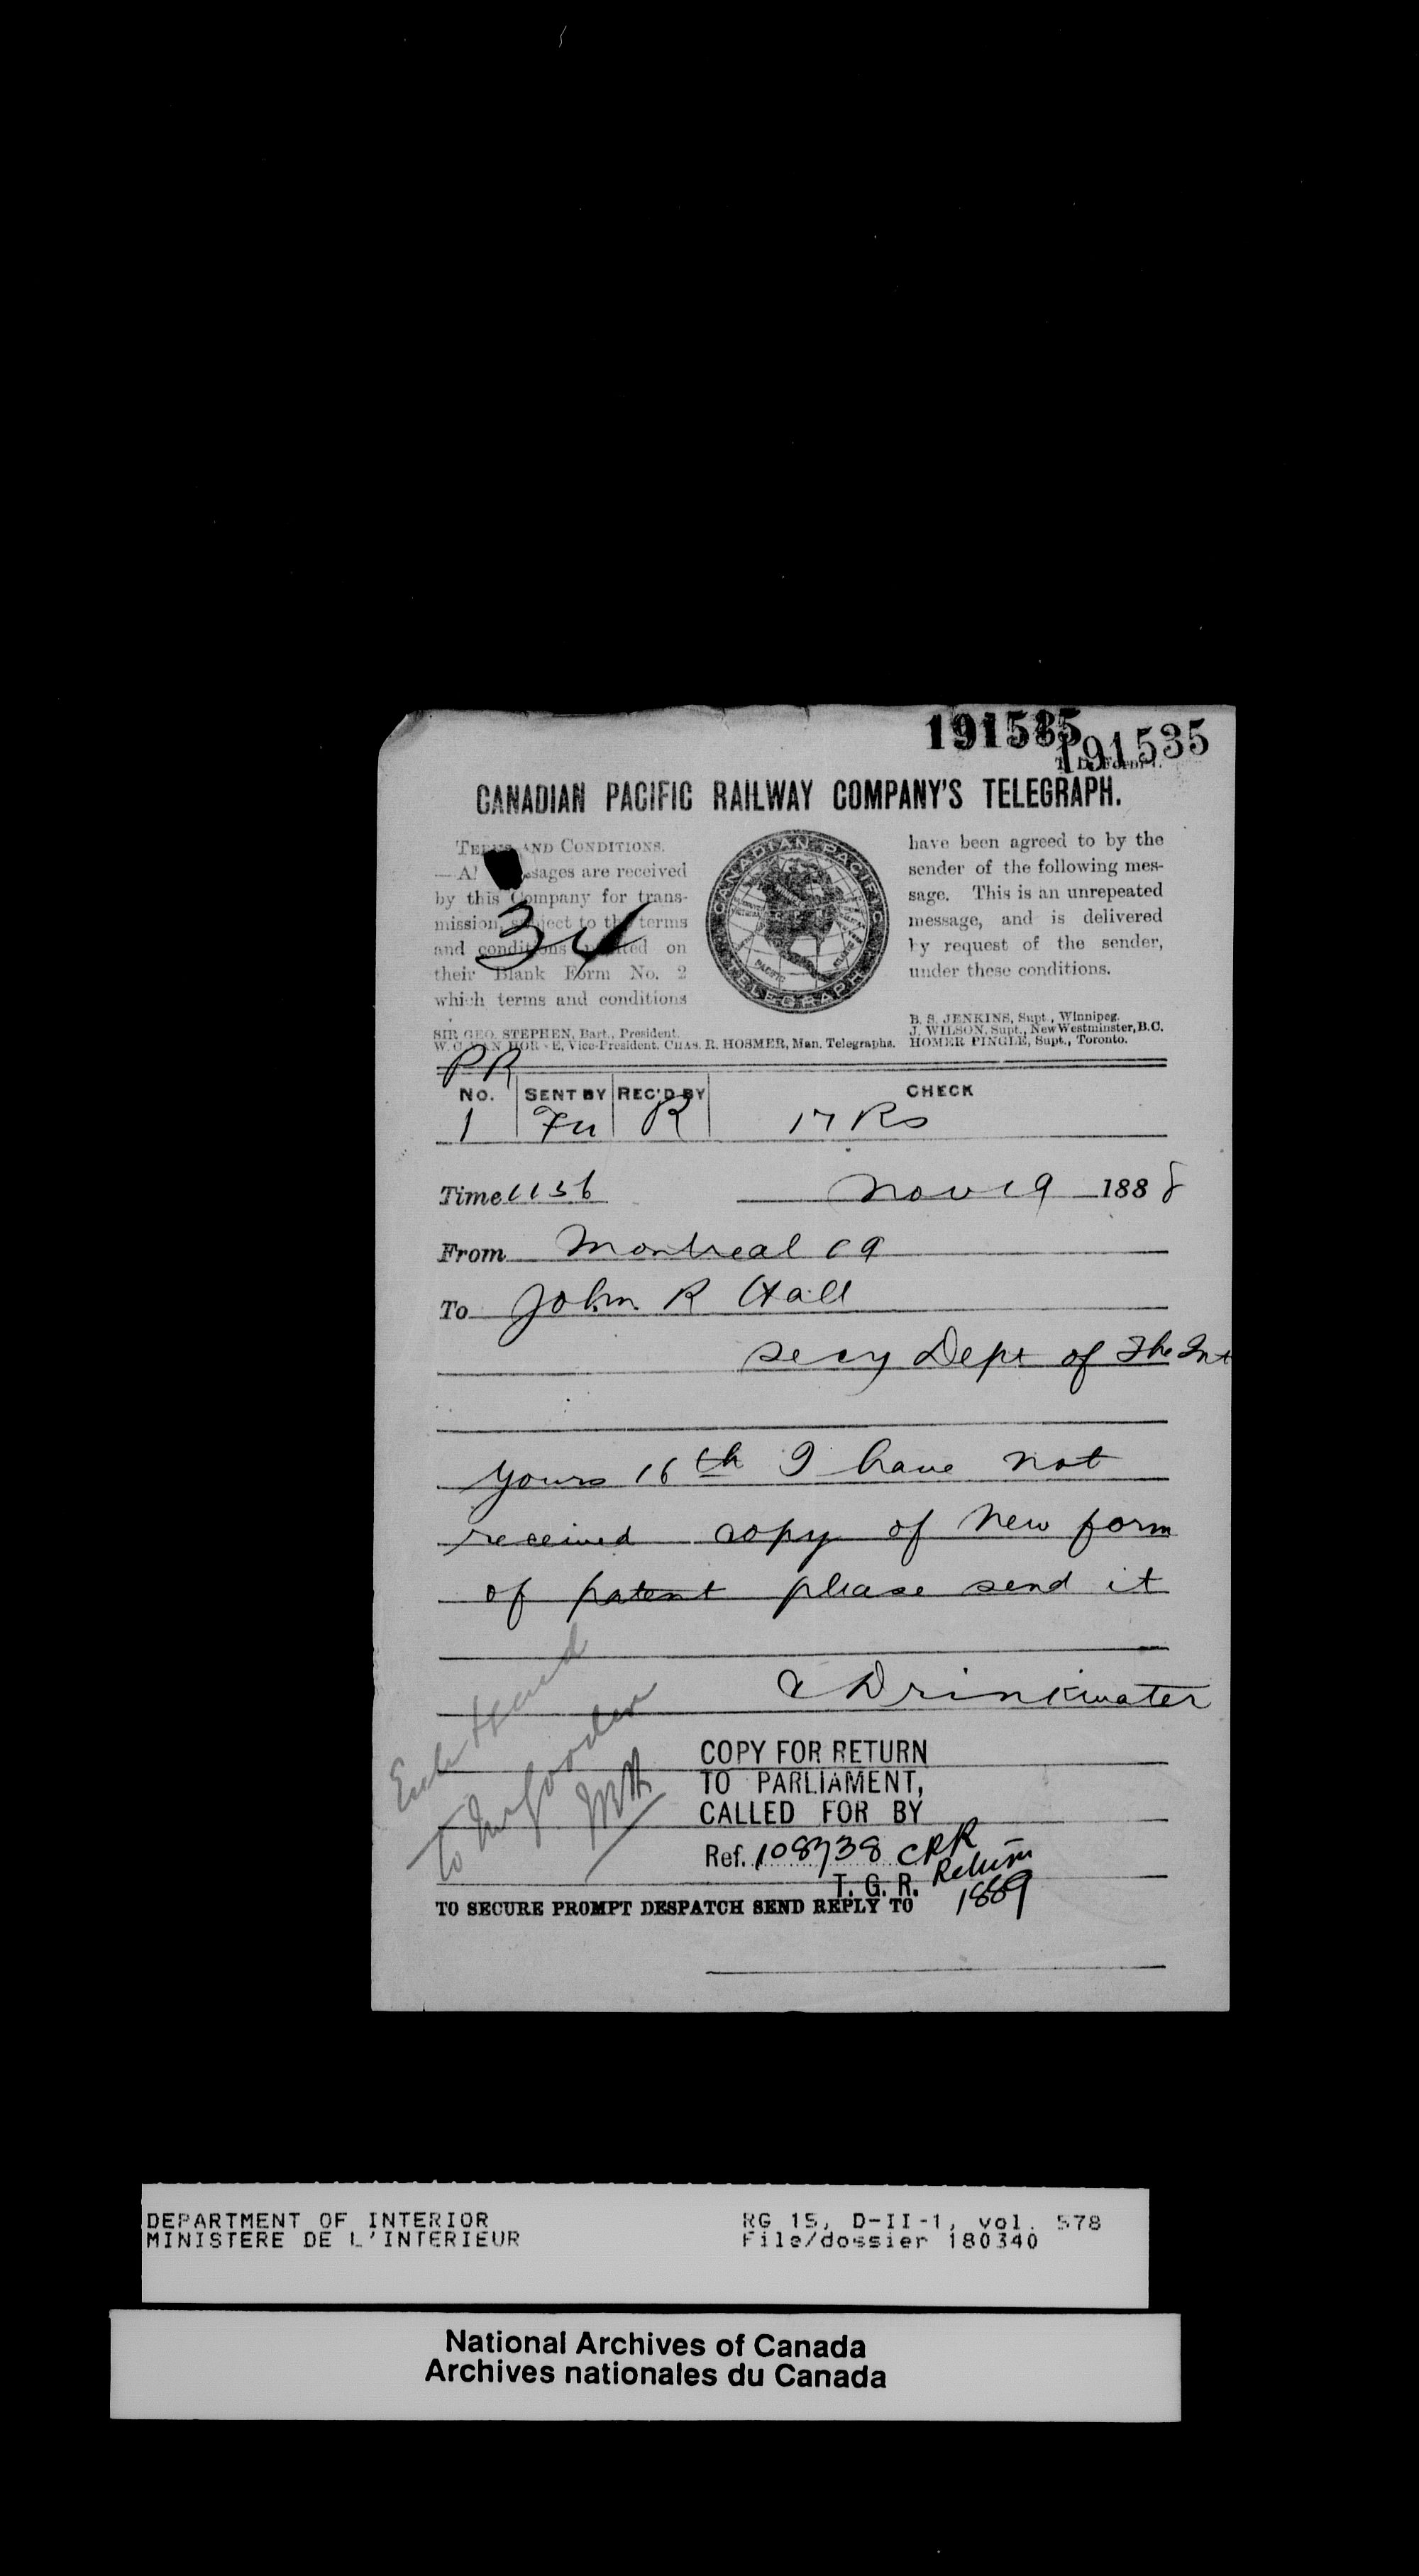 191535
191535
T. D. Form 1.
CANADIAN PACIFIC RAILWAY COMPANY'S TELEGRAPH.
TERMS AND CONDITIONS.
—All messages are received
by this Company for trans-
mission, subject to the terms
and conditions printed on
their Blank Form No. 2
which terms and conditions
34
CANADIAN PACIFIC
TELEGRAPH
have been agreed to by the
sender of the following mes-
sage. This is an unrepeated
message, and is delivered
by request of the sender,
under these conditions.
SIR GEO. STEPHEN, Bart., President.
W. C. VAN HORNE, Vice-President. CHAS. R. HOSMER, Man. Telegraphs.
B. S. JENKINS, Supt., Winnipeg.
J. WILSON, Supt., New Westminster, B.C.
HOMER PINGLE, Supt., Toronto.
PR
NO. SENT BY REC'D BY CHECK
1 Fu R 17 Ro
Time 1156 Nov 19 1888
From Montreal 19
To John R Hall
Secy Dept of The Int
Yours 16th I have not
received copy of new form
of patent please send it
C Drinkwater
to Mr Goodeve
COPY FOR RETURN
TO PARLIAMENT,
CALLED FOR BY
Ref. 108738 CPR
Return
T. G. R.
1889
TO SECURE PROMPT DESPATCH SEND REPLY TO
DEPARTMENT OF INTERIOR
MINISTERE DE L'INTERIEUR
RG 15, D-II-1, vol. 578
File/dossier 180340
National Archives of Canada
Archives nationales du Canada